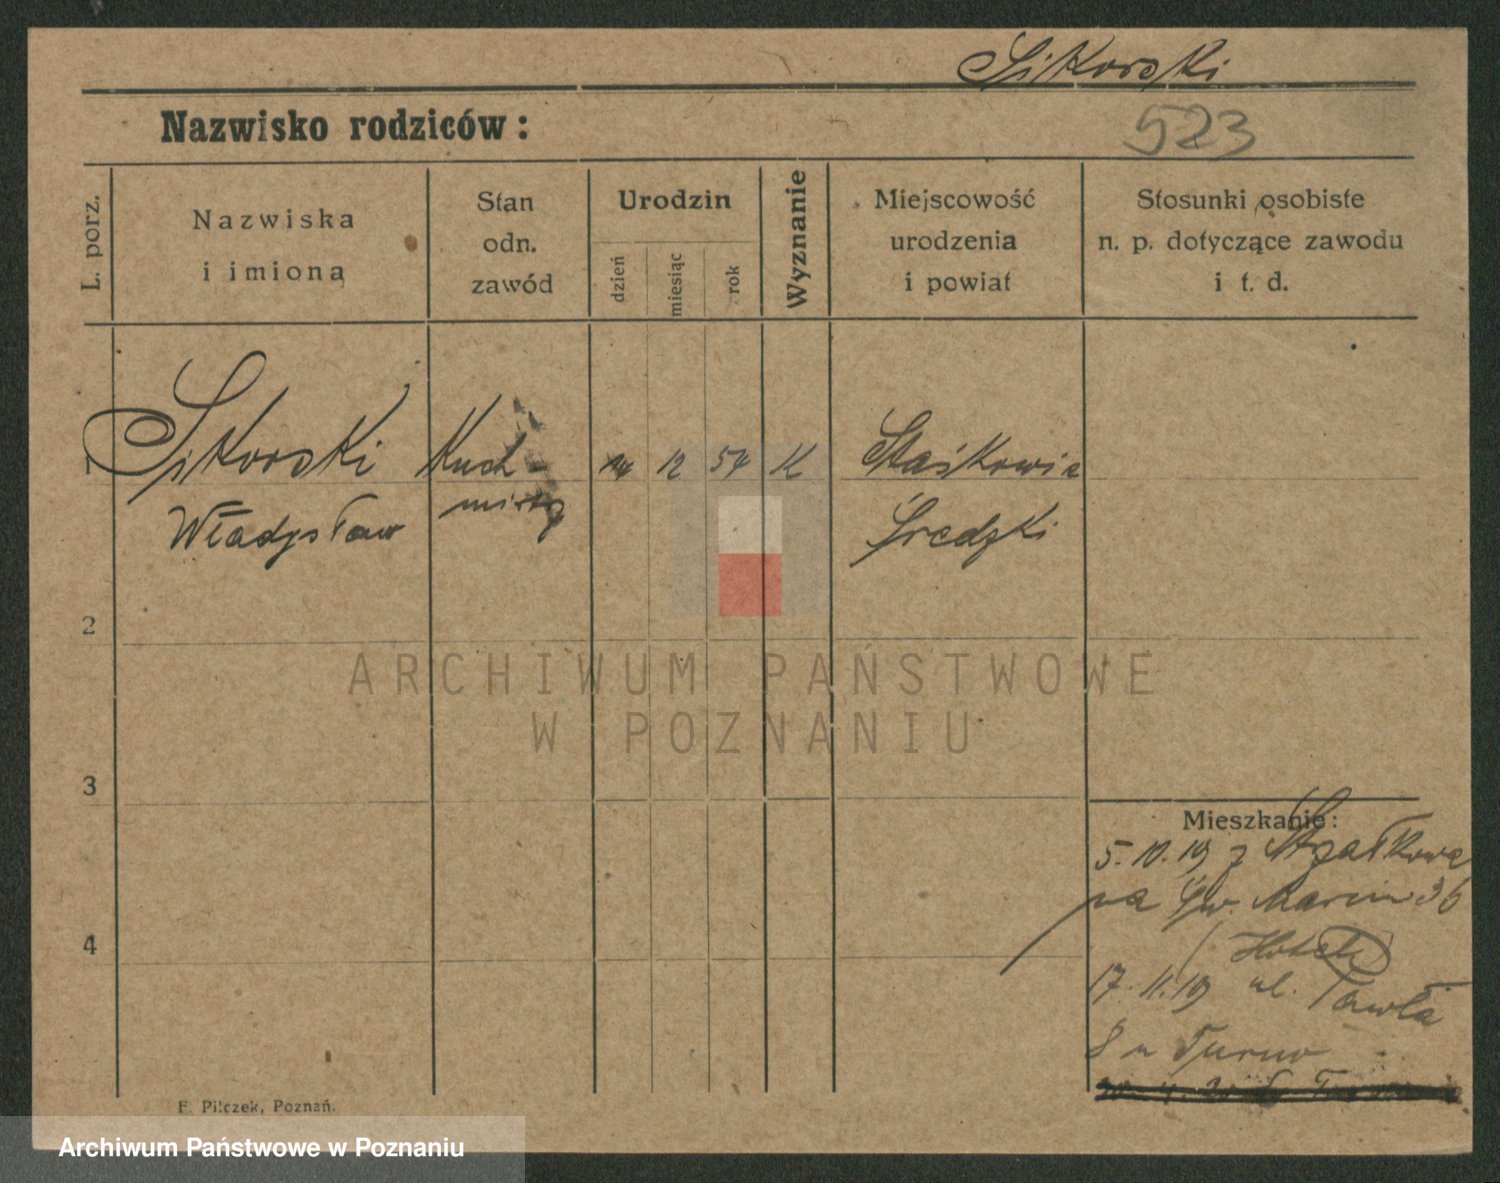 Sikorski
Nazwisko rodziców:
523
L. porz.
Nazwiska
i imiona
Stan
odn.
zawód
Urodzin
dzień
miesiąc
rok
Wyznanie
Miejscowość
urodzenia
i powiat
Stosunki osobiste
n. p. dotyczące zawodu
i t. d.
1
Sikorski
Władysław
Kuch-
mistrz
12
54
K
Staśkowie
Średzki
2
ARCHIWUM PAŃSTWOWE
W POZNANIU
3
4
Mieszkanie:
5. 10. 19 z Strzałkowa
na Św. Marcin 36
Hotel
17. 11. 19 ul. Pawła
8 u Turno
F. Pilczek, Poznań.
Archiwum Państwowe w Poznaniu